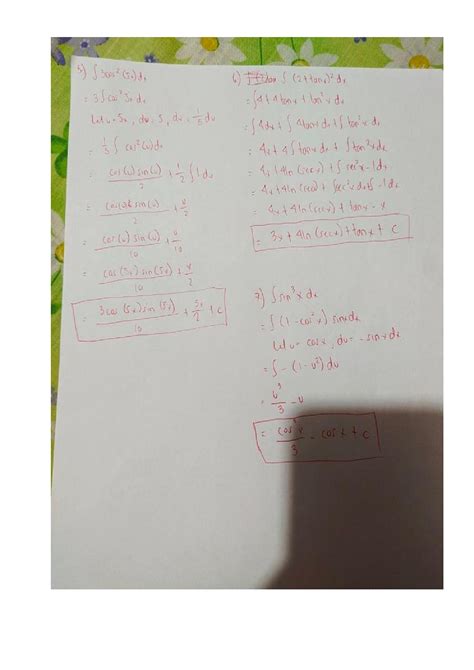 5) ∫ 3cos² (5x) dx
= 3 ∫ cos² 5x dx
let u = 5x, du = 5, dx = 1/5 du
= 1/5 ∫ cos² (u) du
= cos(u) sin(u) / 2 + 1/2 ∫ 1 dx
= cos(u) sin(u) / 2 + u/2
= cos(u) sin(u) / 10 + u/10
= cos (5x) sin (5x) / 10 + x/2
= 3cos (5x) sin (5x) / 10 + 3x/2 + C
6) ∫ (2 + tanx)² dx
= ∫ 4 + 4tanx + tan²x dx
= ∫ 4dx + ∫ 4tanx dx + ∫ tan²x dx
= 4x + 4 ∫ tanx dx + ∫ tan²x dx
= 4x + 4ln (secx) + ∫ sec²x - 1 dx
= 4x + 4ln (secx) + ∫ sec²x dx + ∫ -1 dx
= 4x + 4ln (secx) + tanx - x
= 3x + 4ln (secx) + tanx + C
7) ∫ sin³x dx
= ∫ (1 - cos²x) sinx dx
let u = cosx, du = -sinx dx
= ∫ - (1 - u²) du
= u³/3 - u
= cos³ / 3 - cosx + C